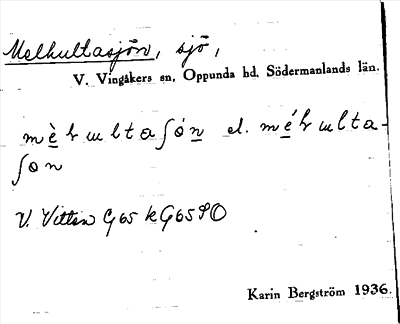 Melhultasjön, sjö,
V. Vingåkers sn, Oppunda hd, Södermanlands län.
mèhultaʃón el. méhulta-
ʃon
V. Vitten G65 kG65SO
Karin Bergström 1936.